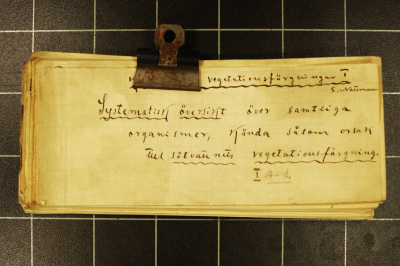 vegetationsfärgningar I
E. Naumann
Systematisk översikt över samtliga
organismer, kända såsom orsak
till sötvattnets vegetationsfärgning.
I A-L